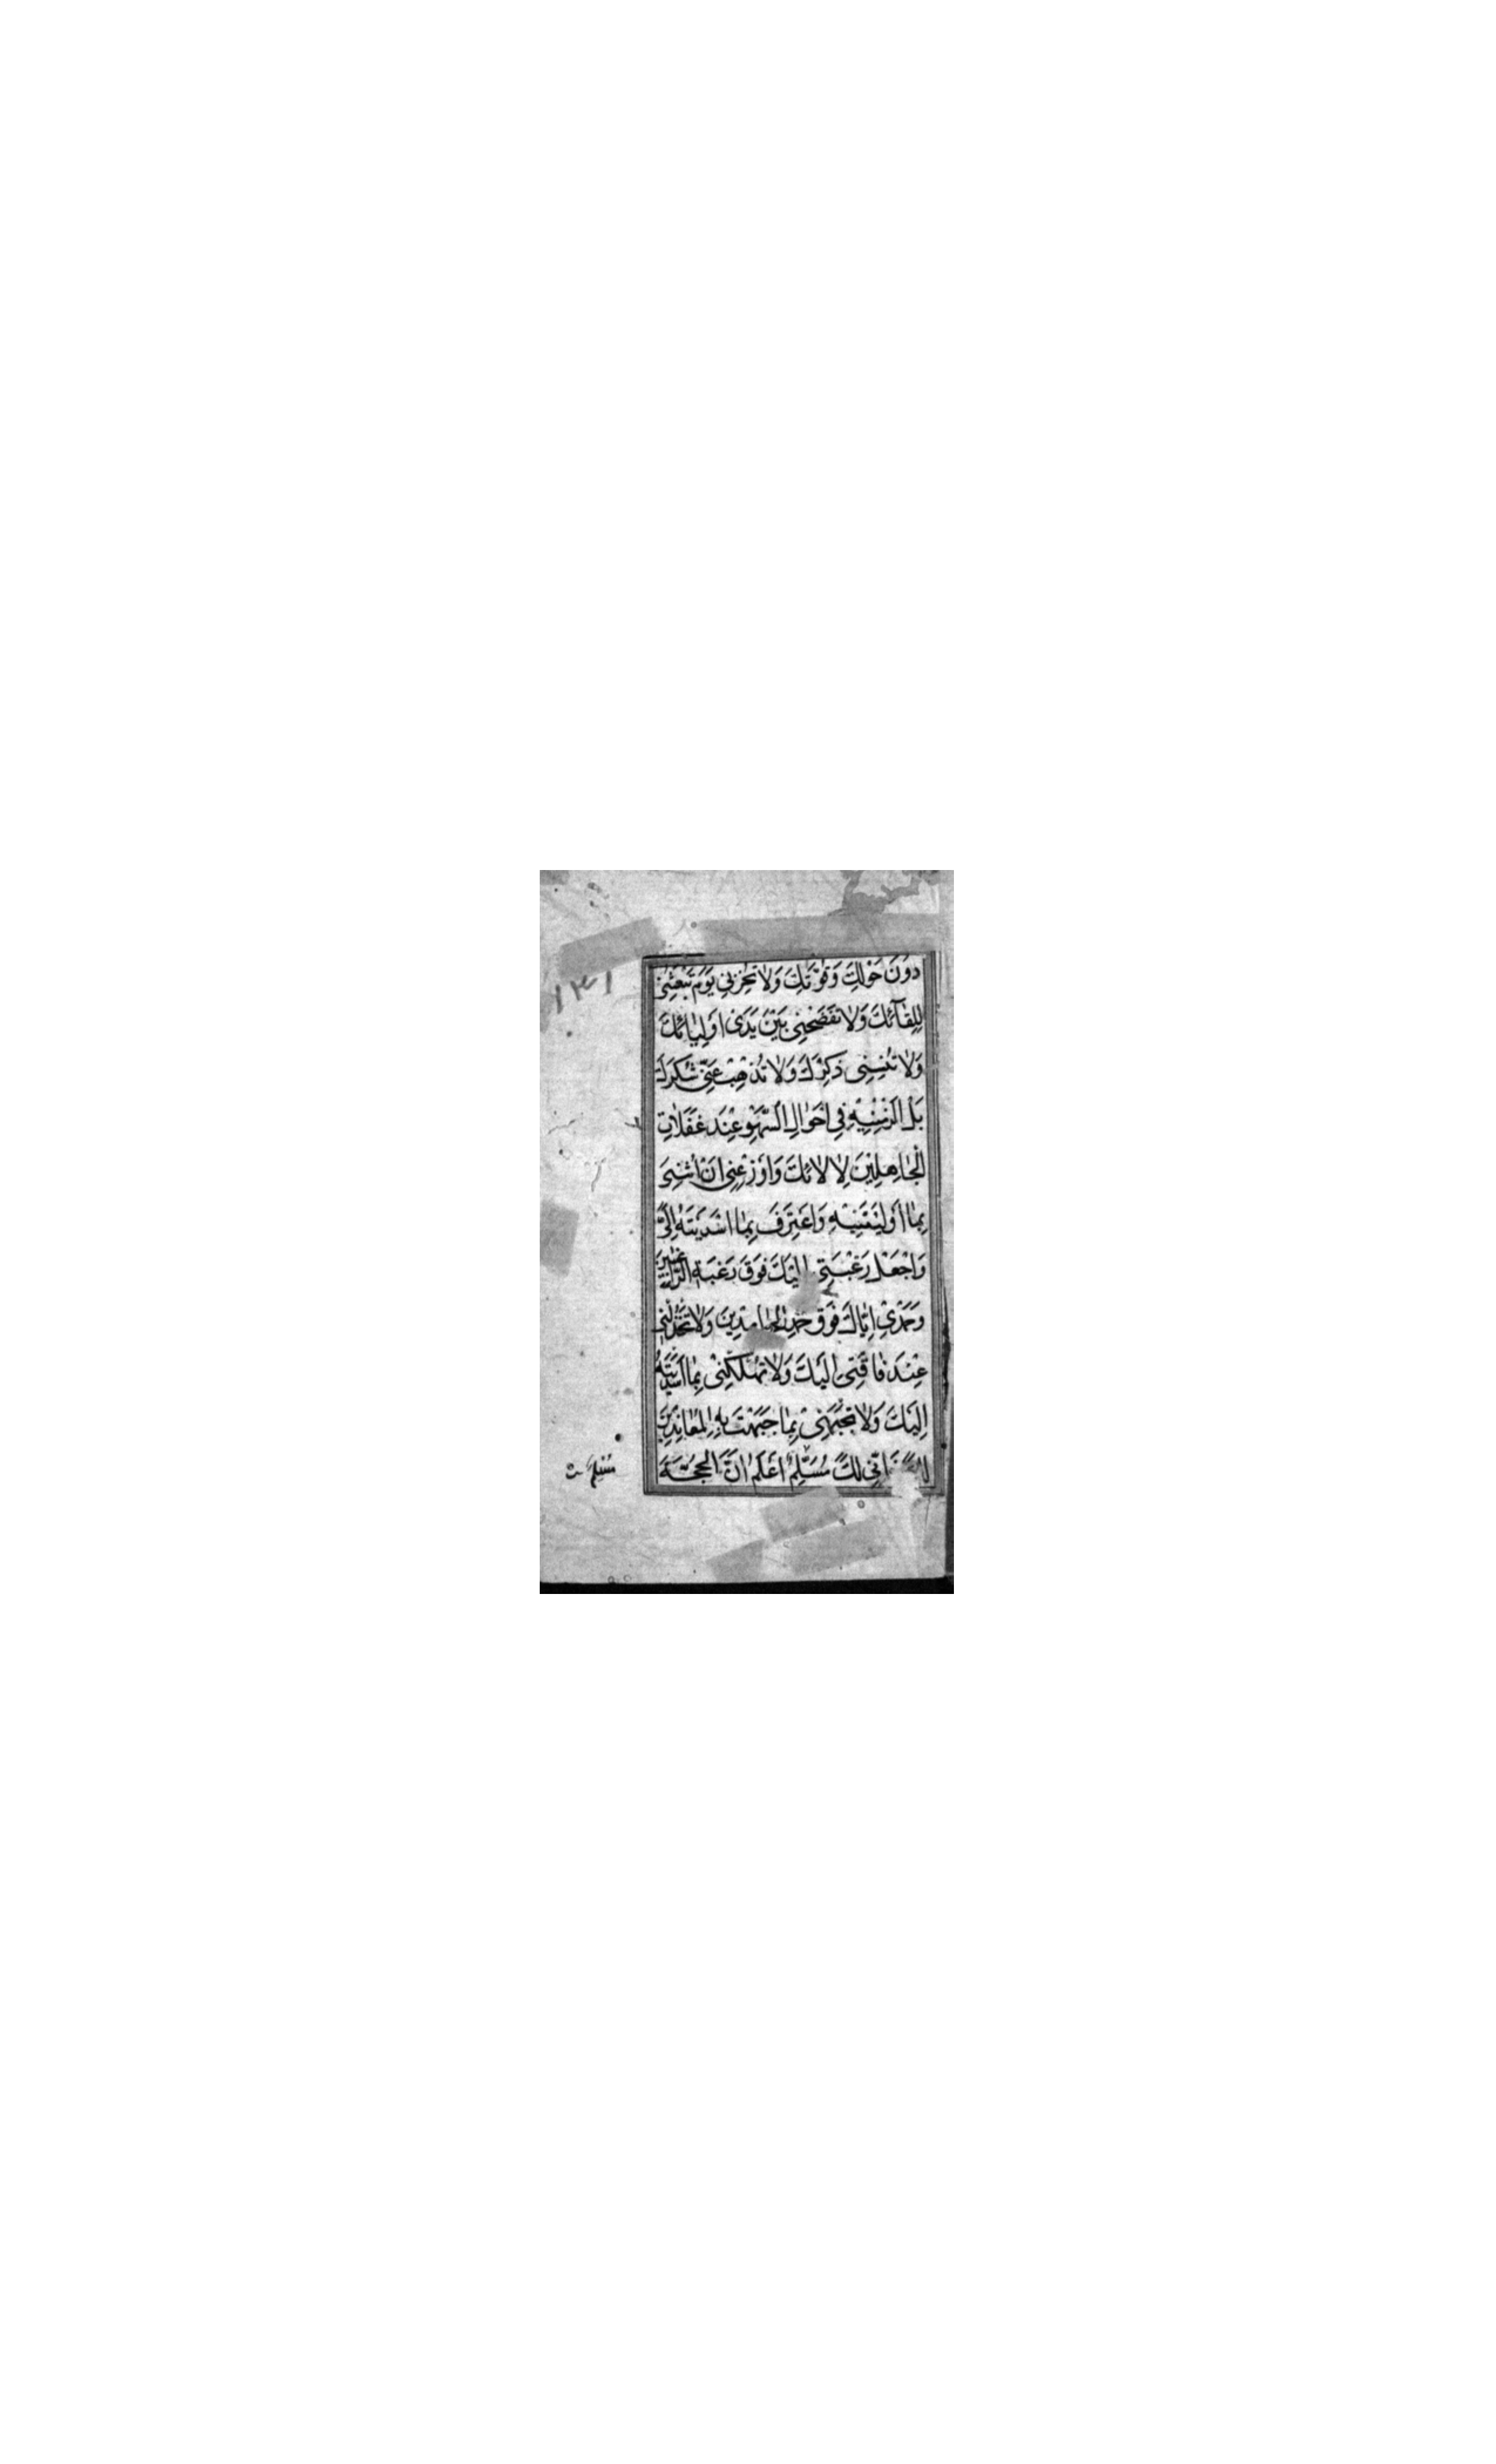 ١٣١
دُونَ حَوْلِكَ وَقُوَّتِكَ وَلَا تُخْزِنِي يَوْمَ تَبْعَثُنِي
لِلِقَآئِكَ وَلَا تَفْضَحْنِي بَيْنَ يَدَىْ اَوْلِيَائِكَ
وَلَا تُنْسِنِى ذِكْرَكَ وَلَا تُذْهِبْ عَنِّي شُكْرَكَ
بَلْ اَلْزِمْنِيهِ فِي اَحْوَالِ السَّهْوِ عِنْدَ غَفَلَاتِ
الْجَاهِلِيْنَ لِاٰلَائِكَ وَاَوْزِعْنِى اَنْ اُثْنِىَ
بِمَا اَوْلَيْتَنِيْهِ وَاَعْتَرِفَ بِمَا اَسْدَيْتَهُ اِلَىَّ
وَاجْعَلْ رَغْبَتِى اِلَيْكَ فَوْقَ رَغْبَةِ الرَّاغِبِيْنَ
وَحَمْدِىْ اِيَّاكَ فَوْقَ حَمْدِ الْحَامِدِيْنَ وَلَا تَخْذُلْنِي
عِنْدَ فَاقَتِى اِلَيْكَ وَلَا تُهْلِكْنِىْ بِمَا اَسْدَيْتُهُ
اِلَيْكَ وَلَا تَجْبَهْنِىْ بِمَا جَبَهْتَ بِهِ الْمُعَانِدِيْنَ
لَكَ فَاِنِّي لَكَ مُسَلِّمٌ اَعْلَمُ اَنَّ الْحُجَّةَ